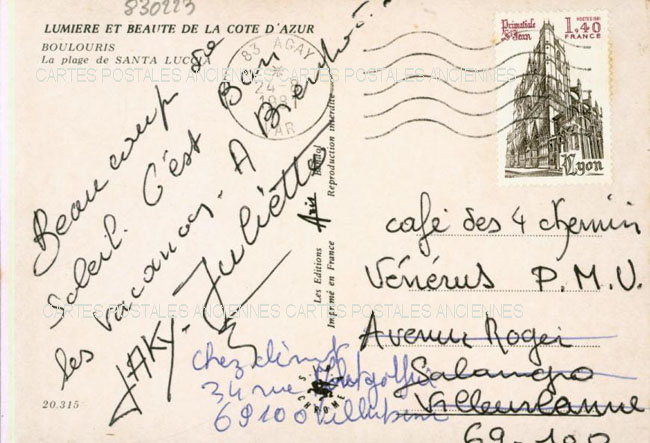 830223
LUMIERE ET BEAUTE DE LA COTE D'AZUR
BOULOURIS
La plage de SANTA LUCCIA
CARTES POSTALES ANCIENNES
Beaucoup de
soleil. C'est Bon
les vacances. A Bientôt.
JAKY. Juliette
83 AGAY
24-8
VAR
Primatiale
St Jean
1,40
FRANCE
Lyon
Les Editions
Imprimé en France
Reproduction interdite
café des 4 chemin
Vénérus P.M.U.
Avenue Roger
Salengro
Villeurbanne
69-100
CARTES POSTALES ANCIENNES
chez
34 rue
69100 Villeurbanne
20.315